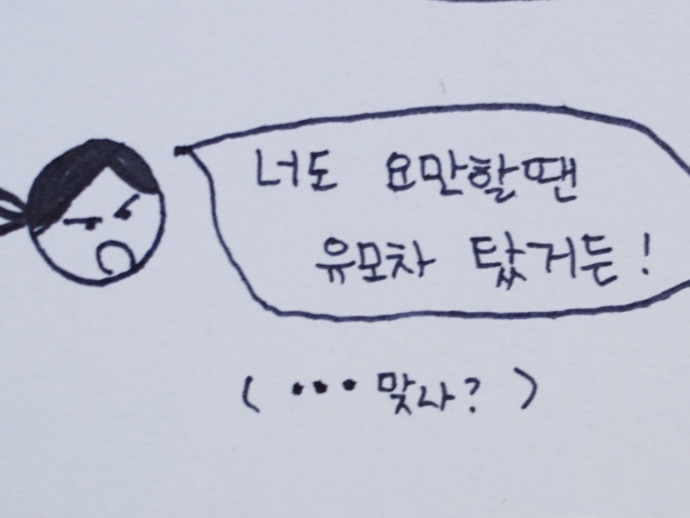 너도 요만할땐
유모차 탔거든!
(•••맞나?)